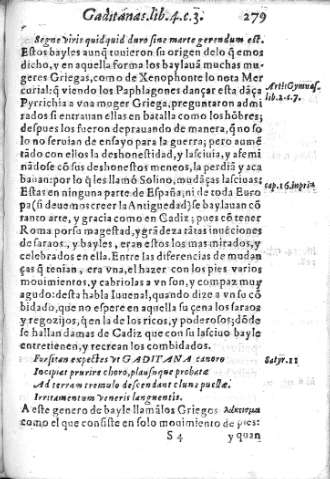 Gaditánas. lib. 4. c. 3. 279
Segne viris quidquid duro sine marte gerendum est.
Estos bayles aunq̃ tuuieron su origen delo q̃ emos
dicho, y en aquella forma los baylauā muchas mu-
geres Griegas, como de Xenophonte lo nota Mer
curial: q̃ viendo los Paphlagones dançar esta dāça
Pyrrichia a vna muger Griega, preguntaron admi
rados si entrauan ellas en batalla como los hōbres;
despues los fueron deprauando de manera, q̃ no so
lo no seruian de ensayo para la guerra; pero aumē
tado con ellos la deshonestidad, y lasciuia, y afemi
nādose cō sus deshonestos meneos, la perdiā y aca
bauan: por lo q̃ les llamó Solino, mudāças lasciuas:
Estas en ninguna parte de España; ni de toda Euro
pa (si deuemos creer la Antiguedad) se baylauan cō
tanto arte, y gracia como en Cadiz; pues cō tener
Roma por su magestad, y grādeza tātas inuēciones
de saraos, y bayles, eran estos los mas mirados, y
celebrados en ella. Entre las diferencias de mudan
ças q̃ tenian, era vna, el hazer con los pies varios
mouimientos, y cabriolas a vn son, y compaz muy
agudo: desta habla Iuuenal, quando dize a vn su cō
bidado, que no espere en aquella su çena los saraos
y regozijos, q̃ en la de los ricos, y poderosos; dōde
se hallan damas de Cadiz que con su lasciuo bayle
entretienen, y recrean los combidados.
Forsitan expectes vt GADITANA canoro
Incipiat prurire choro, plausuque probatæ
Ad terram tremulo descendant clune puellæ.
Irritamentum veneris languentis.
A este genero de bayle llamālos Griegos
como el que consiste en solo mouimiento de pies:
S 4 y quan
Art. Gymnas.
lib. 2. c. 7.
cap. 16. in prin.
Satyr. 11